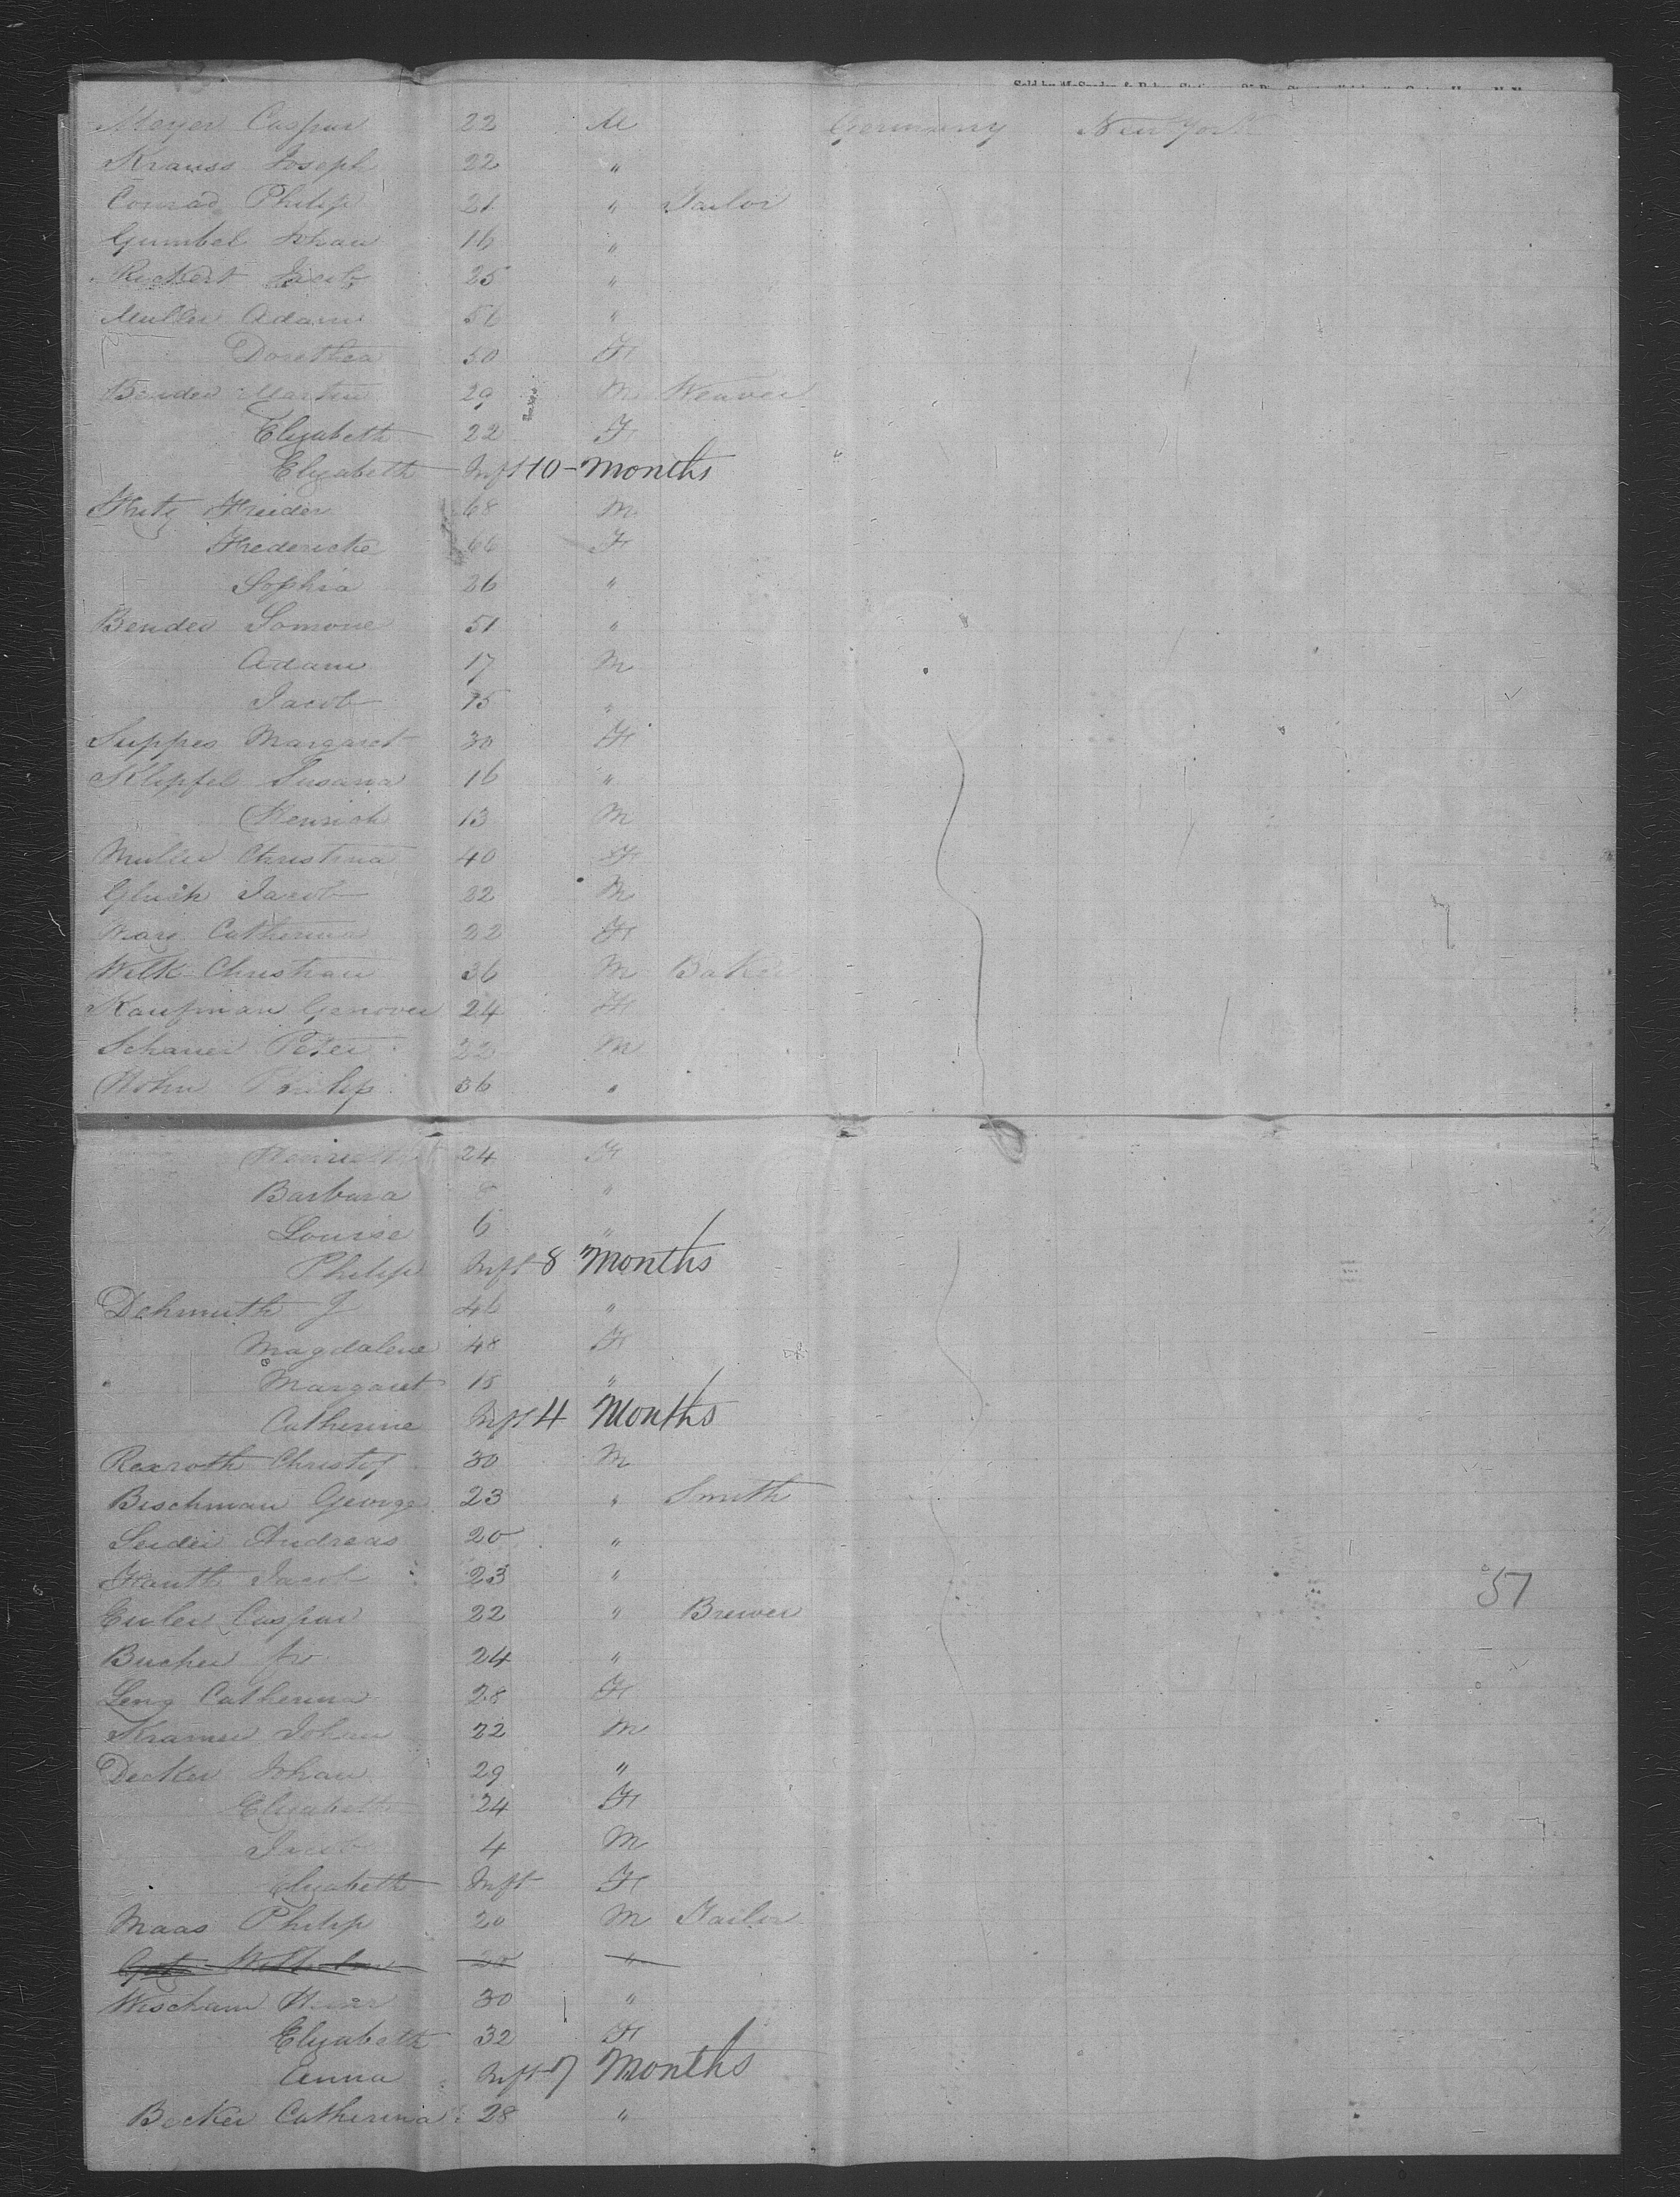 Meyer Caspar 22 M Germany New York
Krauss Joseph 22 "
Conrad Philip 21 " Tailor
Gumbel Johan 16 "
Rickert Jacob 25 "
Muller Adam 56 "
Dorethea 50 F
Bender Martin 29 M Weaver
Elizabeth 22 F
Elizabeth Inft 10 - Months
68 M
Fredericke 66 F
Sophia 26 "
Bender 51 "
Adam 17 M
Jacob 15 "
Suppes Margaret 30 F
Klipfel Susana 16 "
Henrich 13 M
Muller Christina 40 F
Jacob 22 M
Catherina 22 F
Wilk Christian 36 M Baker
Kaufman Genovev 24 F
Schauer Peter 22 M
Hohn Philip 36 "
24 F
Barbara 8 "
Louise 6 "
Philip Inft 8 Months
Dehmuth J 46 "
Magdalene 48 F
Margaret 18 "
Catherine Inft 4 Months
Rexroth Christof 30 M
Bischman George 23 " Smith
Andreas 20 "
Jacob 23 "
Euler Caspar 22 " Brewer
Bucher 24 "
Catherina 28 F
Kramer Johan 22 M
Decker Johan 29 "
Elizabeth 24 F
Jacob 4 M
Elizabeth Inft F
Maas Philip 20 M Tailor
20 "
30 "
Elizabeth 32 F
Anna Inft 7 Months
Becker Catherina 28 "
57